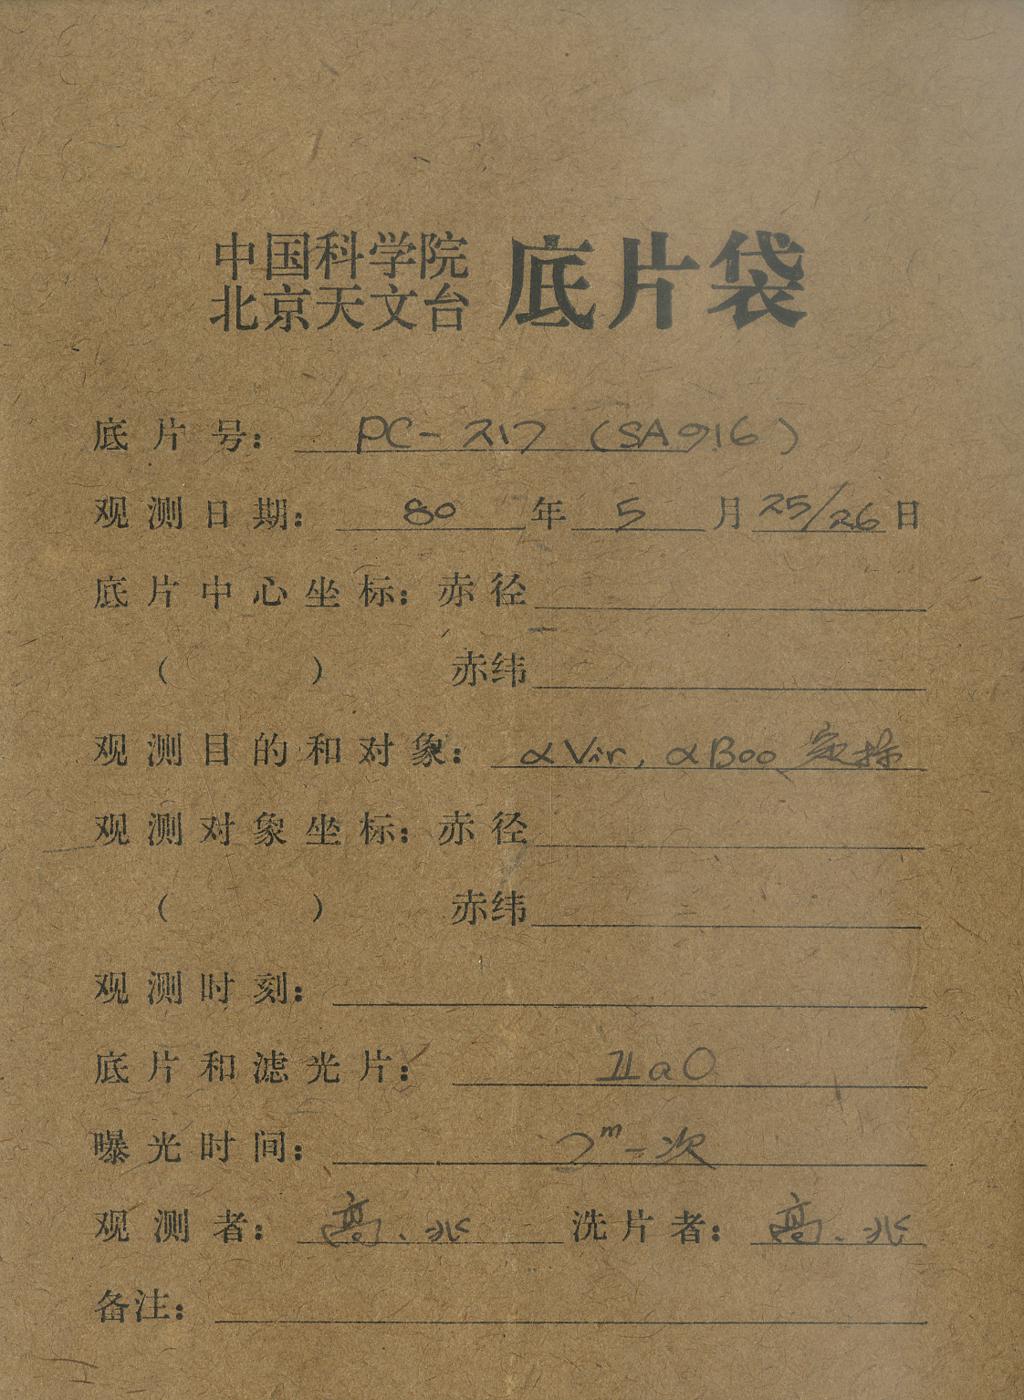 中国科学院
北京天文台 底片袋
底片号: PC-217 (SA916)
观测日期: 80 年 5 月 25/26 日
底片中心坐标: 赤径
( ) 赤纬
观测目的和对象: αVir, αBoo 定标
观测对象坐标: 赤径
( ) 赤纬
观测时刻:
底片和滤光片: IIaO
曝光时间: 2ᵐ 次
观测者: 高、 洗片者: 高、
备注: